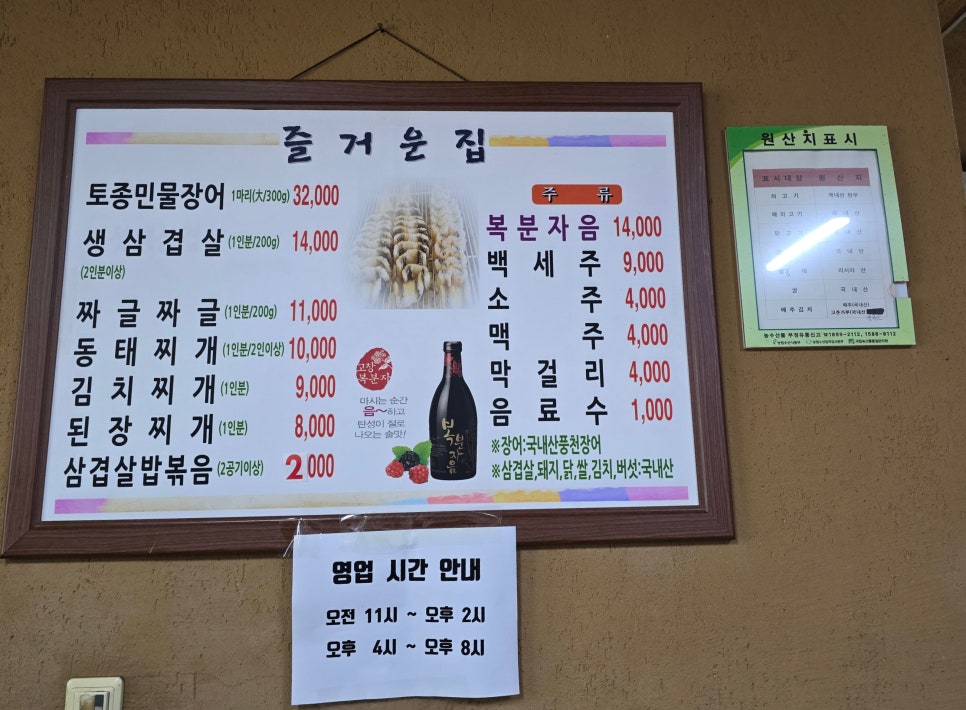 즐거운집
토종민물장어 1마리(大/300g) 32,000
생삼겹살 (1인분/200g) 14,000
(2인분이상)
짜글짜글 (1인분/200g) 11,000
동태찌개 (1인분/2인이상) 10,000
김치찌개 (1인분) 9,000
된장찌개 (1인분) 8,000
삼겹살밥볶음 (2공기이상) 2000
주 류
복분자음 14,000
백세주 9,000
소주 4,000
맥주 4,000
막걸리 4,000
음료수 1,000
※장어:국내산풍천장어
※삼겹살,돼지,닭,쌀,김치,버섯:국내산
고창
복분자
마시는 순간
음~하고
탄성이 절로
나오는 술맛!
복분자음
영업 시간 안내
오전 11시 ~ 오후 2시
오후 4시 ~ 오후 8시
원산지표시
표시대상 원산지
쇠고기 국내산 한우
돼지고기 국내산
닭고기
국내산
러시아 산
쌀 국내산
배추김치 배추(국내산)
고춧가루(국내산
농수산물 부정유통신고 ☎1899-2112, 1588-8112